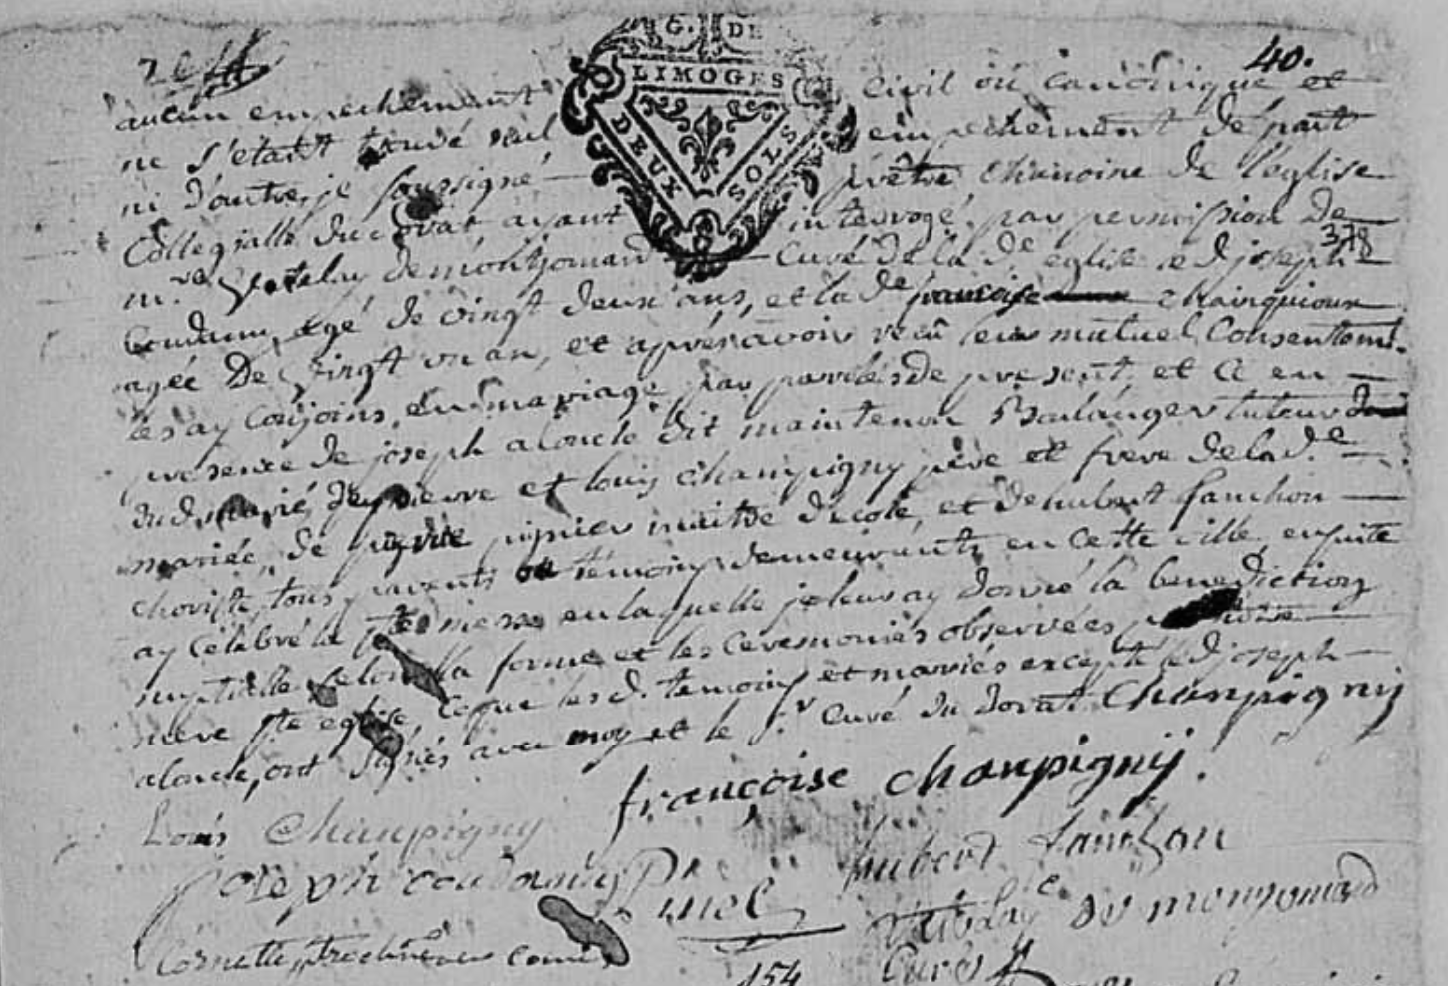 40.
G. DE
LIMOGES
DEUX SOLS
aucun empechement civil ou canonique et
ne s'etant trouvé nul empechement de part
ni d'autre, je soussigné prêtre chanoine de l'eglise
Collegialle du dorat ayant interrogé par permission de
m.re de montjomard Curé de la d.e eglise led joseph
378
agé de vingt deux ans, et la d.e françoise
agée De Vingt un an, et aprés avoir reçu leur mutuel Consentemt.
les ay Conjoins en mariage par paroles de present, et Ce en
presence de joseph alouche dit maintenon Boulanger tuteur
du d marié, de pierre et louis Champigny pere et frere de la d.e
mariée, de maitre d'ecole, et de hubert fanchon
choriste, tous parents ou temoins demeurants en cette ville, ensuite
ay Celebré la ste messe en laquelle je leur ay donné la benediction
nuptialle selon la forme et les ceremonies observées
mere ste eglise, Ce que les d. temoins et mariés excepté led joseph
alouche, ont signés avec moy et le s.r Curé du Dorat Champignij
françoise chanpignij.
Louis Champigny
hubert fanchon
joseph
Pinel
de monjomard
Curé
154